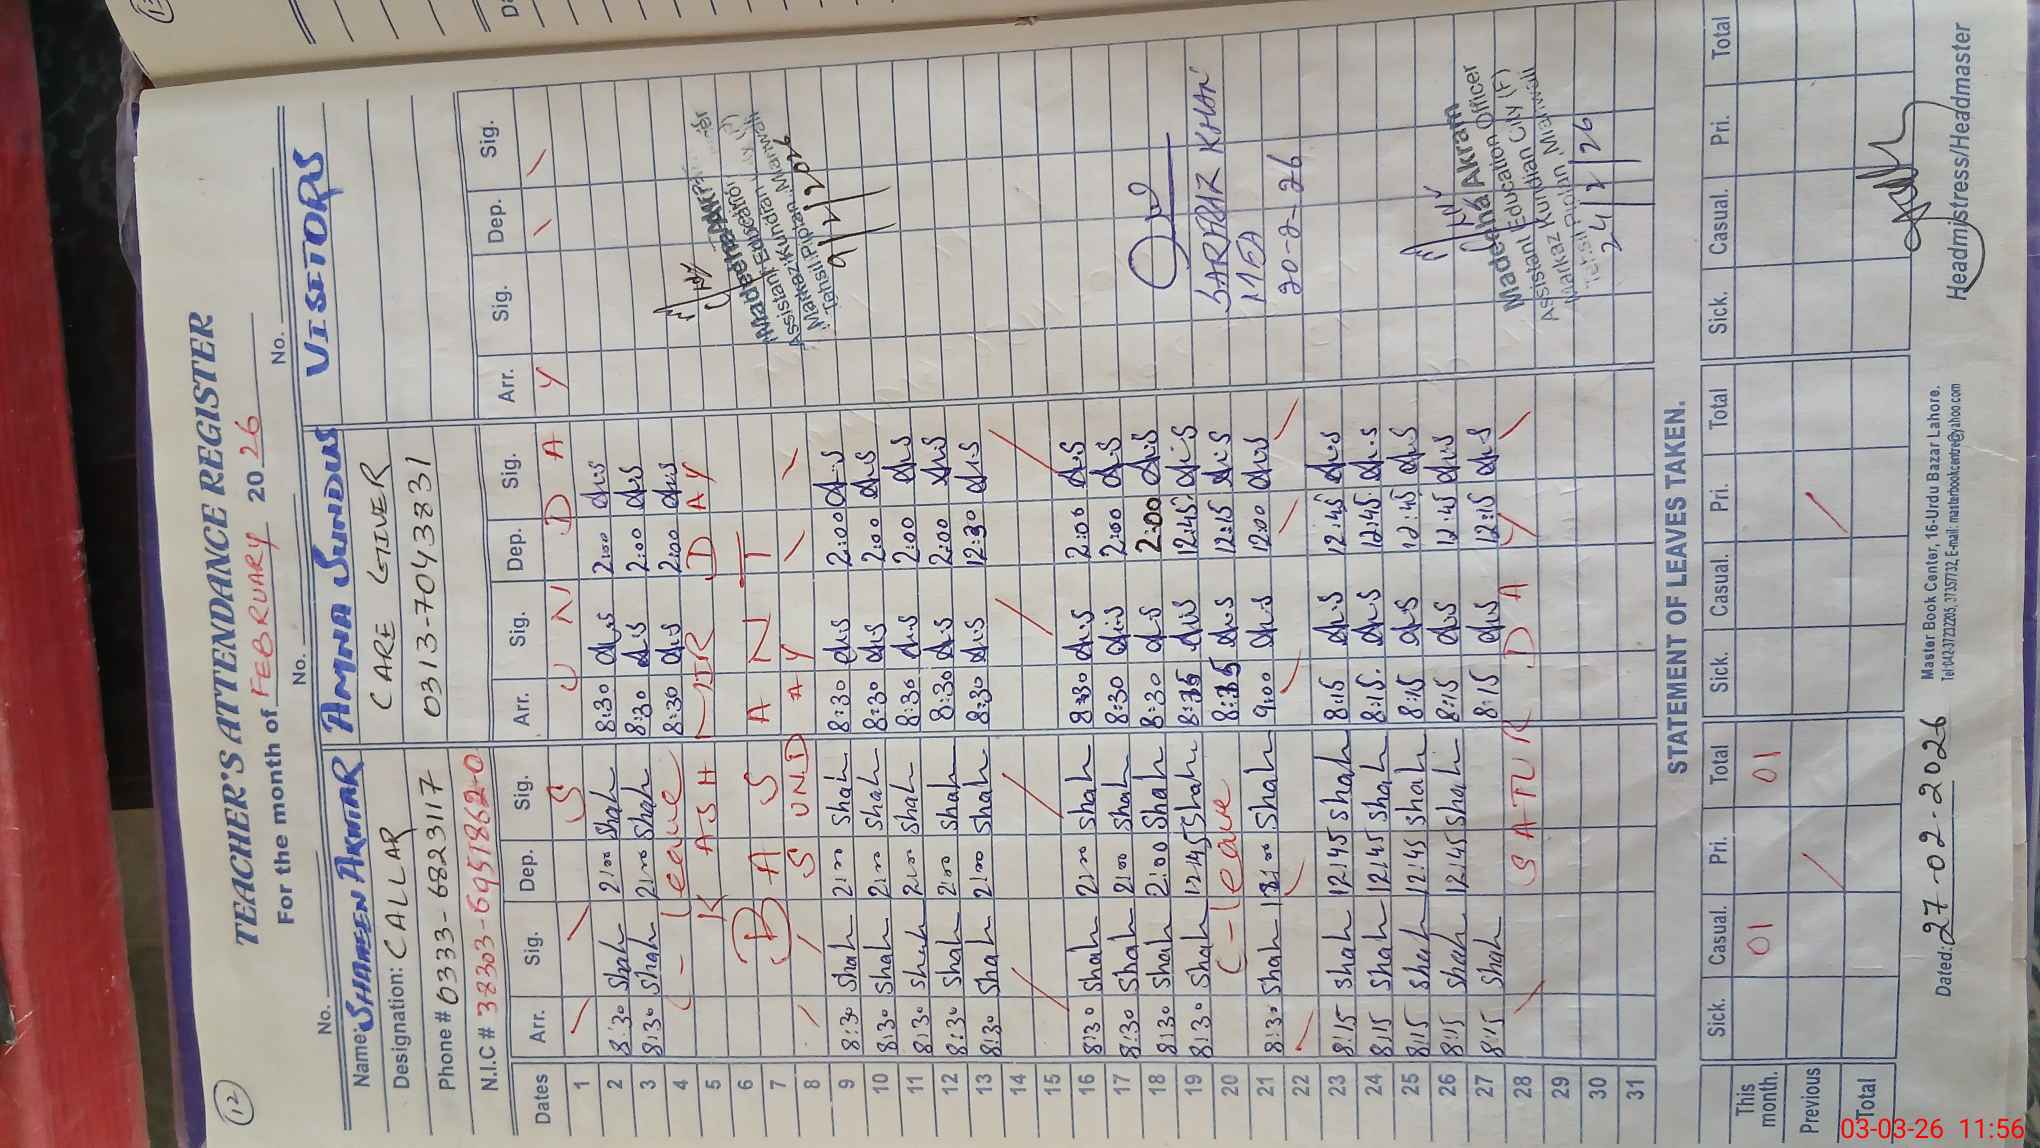 12
TEACHER'S ATTENDANCE REGISTER
For the month of FEBRUARY 2026
No. No. No.
Name: SHAHEEN AKHTAR AMNA SUNDUS VISETORS
Designation: CALLAR CARE GIVER
Phone # 0333-6823117 0313-7043831
N.I.C # 38303-6951862-0
Dates Arr. Sig. Dep. Sig. Arr. Sig. Dep. Sig. Arr. Sig. Dep. Sig.
1 S U N D A Y
2 8:30 Shah 2:00 Shah 8:30 2:00
3 8:30 Shah 2:00 Shah 8:30 2:00
4 C-leave 8:30 2:00
5 KASHMIR DAY
6 BASANT
7
8 SUNDAY
9 8:30 Shah 2:00 Shah 8:30 2:00
10 8:30 Shah 2:00 Shah 8:30 2:00
11 8:30 Shah 2:00 Shah 8:30 2:00
12 8:30 Shah 2:00 Shah 8:30 2:00
13 8:30 Shah 2:00 Shah 8:30 12:30
14
15
16 8:30 Shah 2:00 Shah 8:30 2:00
17 8:30 Shah 2:00 Shah 8:30 2:00
18 8:30 Shah 2:00 Shah 8:30 2:00
19 8:30 Shah 12:45 Shah 12:45
20 C-leave 12:15
21 8:30 Shah Shah 9:00 12:00
22
23 8:15 Shah 12:45 Shah 8:15 12:45
24 8:15 Shah 12:45 Shah 8:15 12:45
25 8:15 Shah 12:45 Shah 8:15 12:45
26 8:15 Shah 12:45 Shah 8:15 12:45
27 8:15 Shah 8:15 12:15
28 SATURDAY
29
30
31
Markaz Kundian
Tehsil Piplan Mianwali
9/2/2026
SARFRAZ KHAN
MEA
20-2-26
Madeeha Akram
Assistant Education Officer
Markaz Kundian City (F)
Tehsil Piplan Mianwali
24/2/26
STATEMENT OF LEAVES TAKEN.
Sick. Casual. Pri. Total Sick. Casual. Pri. Total Sick. Casual. Pri. Total
This month. 01 01
Previous
Total
Dated: 27-02-2026
Master Book Center, 16-Urdu Bazar Lahore.
Headmistress/Headmaster
03-03-26 11:56